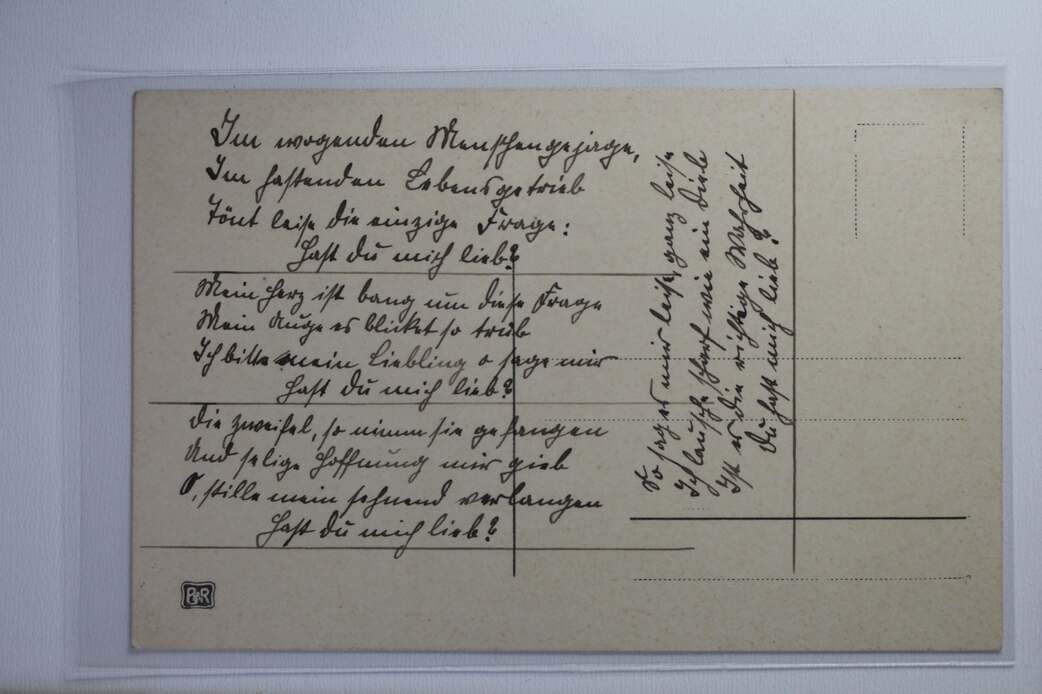 Im wogenden Menschengejage,
Im hastenden Lebensgetrieb
Tönt leise die einzige Frage:
Hast du mich lieb?
Mein Herz ist bang um diese Frage
Mein Auge es blicket so trüb
Ich bitte mein Liebling o sage mir
Hast du mich lieb?
Die zweifel, so nimm sie gefangen
Und selige Hoffnung mir gieb
O, stille mein sehnend verlangen
Hast du mich lieb?
So sag es mir leise, ganz leise
Ich lausche scharf wie ein Dieb
Ist es die richtige Wahrheit
Du hast mich lieb?
B&R